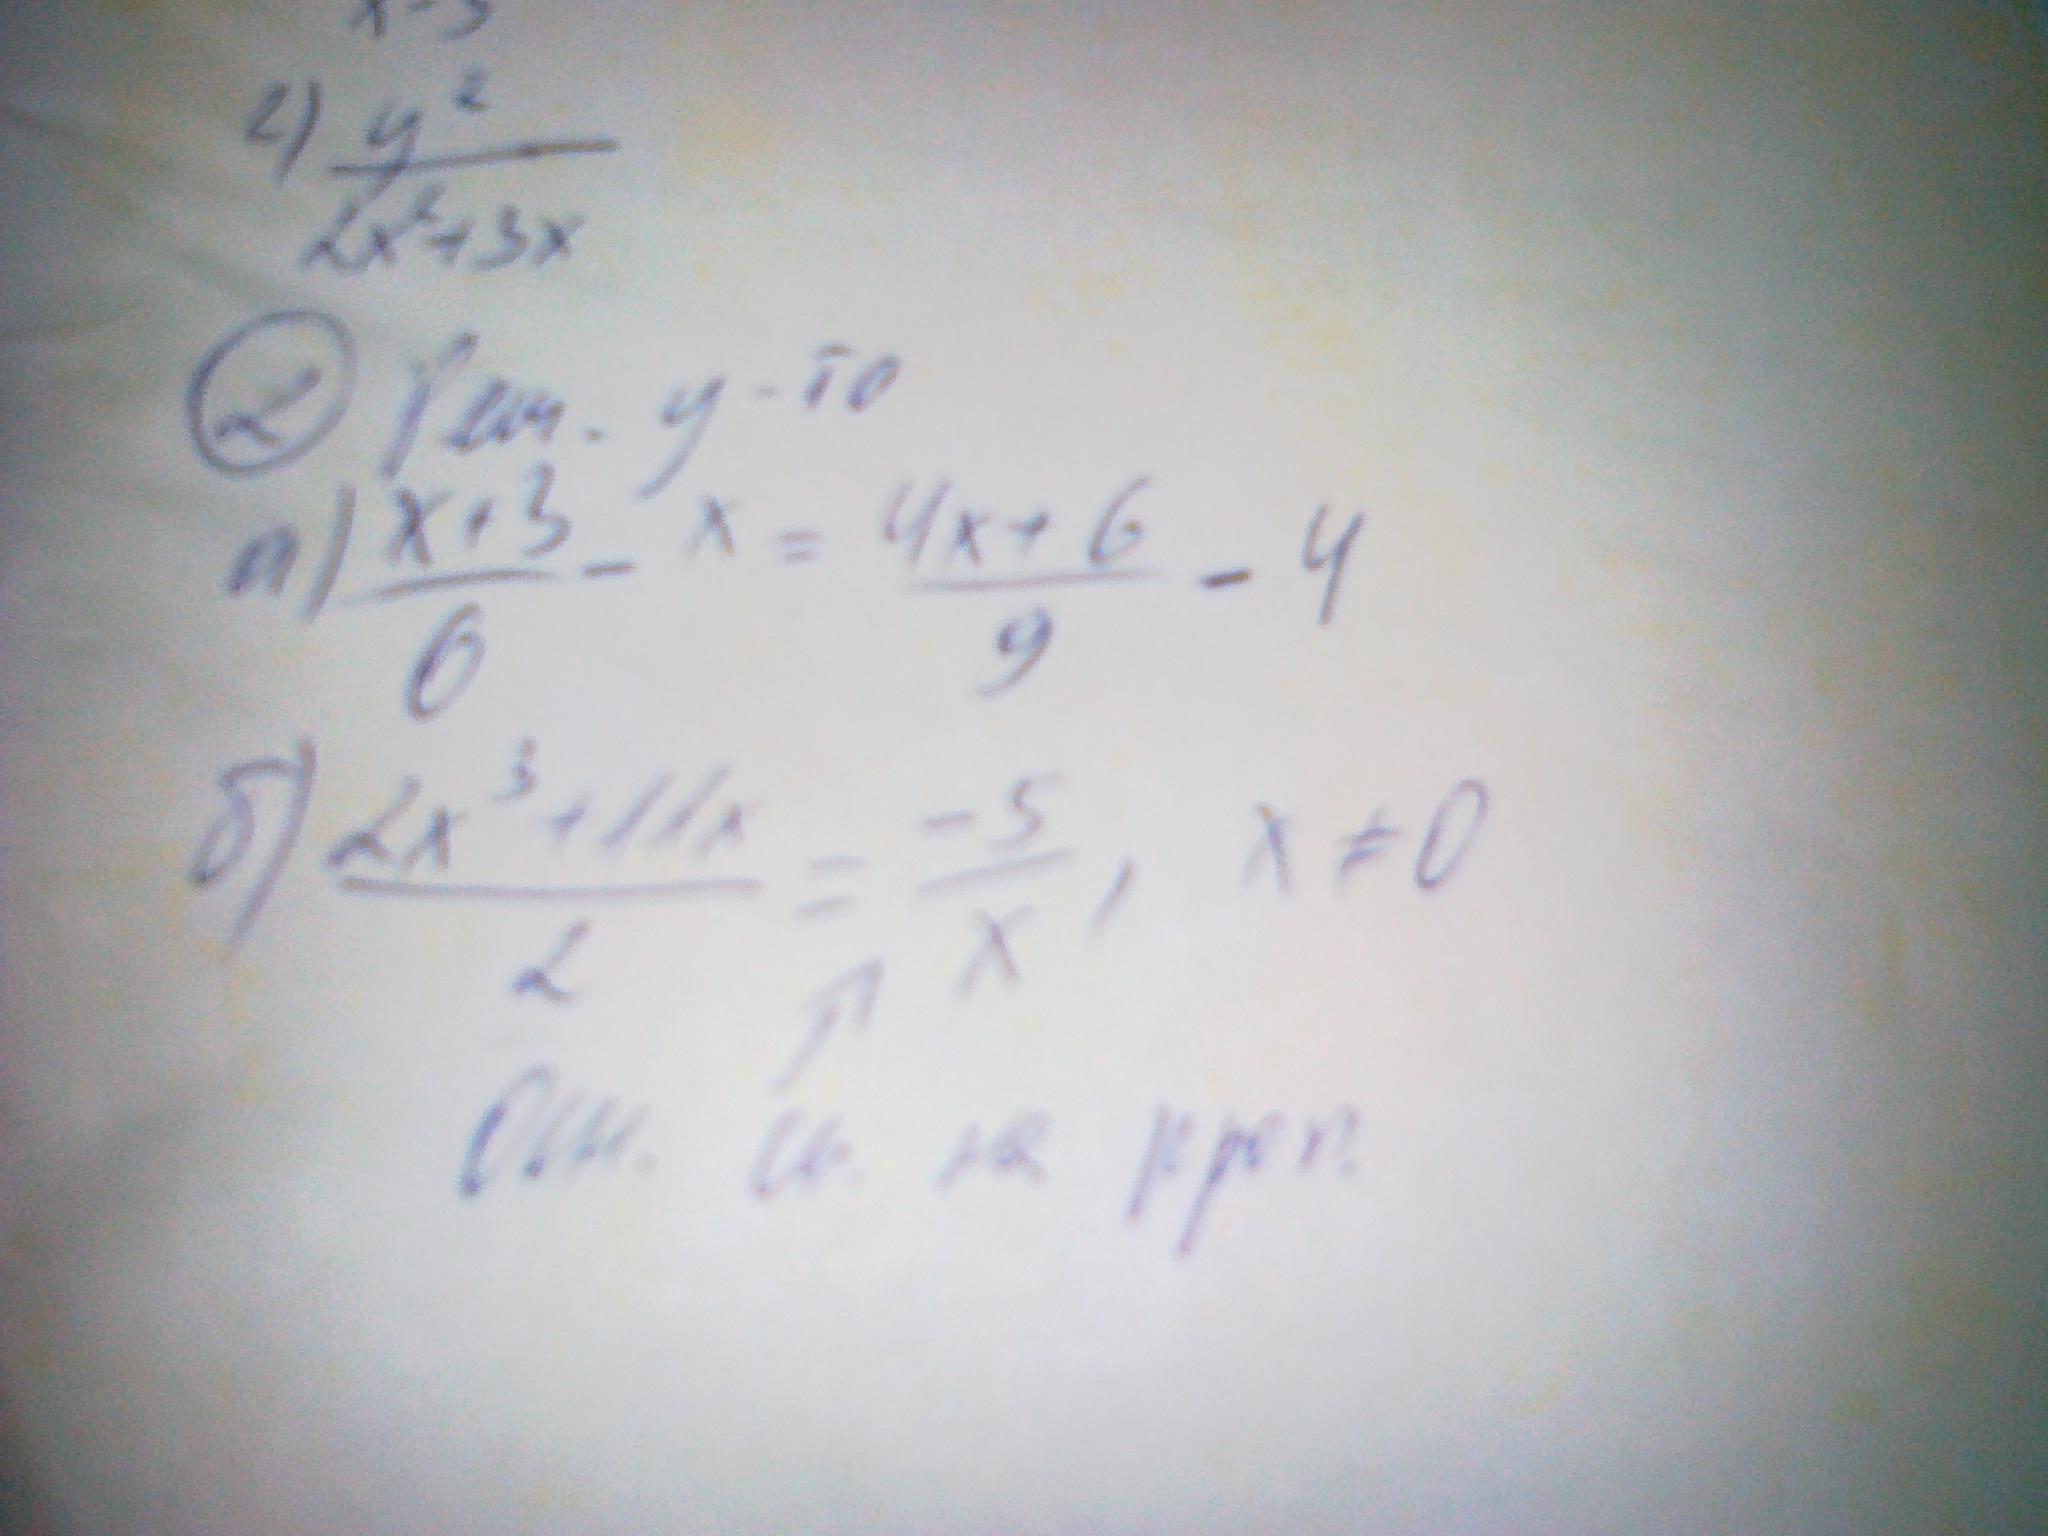 x-3
г) y²/(2x²+3x)
② Реш. у-ю
а) (x+3)/6 - x = (4x+6)/9 - 4
б) (2x³+11x)/2 = -5/x, x ≠ 0
↑
Осн. св. на